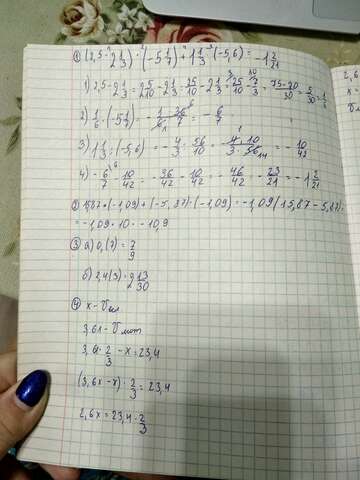 ① (2,5 - 2 1/3) · (-5 1/7) + 1 1/3 · (-5,6) = -1 2/21
1) 2,5 - 2 1/3 = 2 5/10 - 2 1/3 = 25/10 - 2 1/3 = 25/10 - 7/3 = 75-70/30 = 5/30 = 1/6
2) 1/6 · (-5 1/7) = -1/6 · 36/7 = -6/7
3) 1 1/3 : (-5,6) = -4/3 : 56/10 = -4/3 · 10/56 = -10/42
4) -6/7 - 10/42 = -36/42 - 10/42 = -46/42 = -23/21 = -1 2/21
② 15,87 · (-1,09) + (-5,87) · (-1,09) = -1,09 (15,87 - 5,87) =
= -1,09 · 10 = -10,9
③ а) 0,(7) = 7/9
б) 2,4(3) = 2 13/30
④ х -
3,6х -
3,6х · 2/3 - х = 23,4
(3,6х - х) · 2/3 = 23,4
2,6х = 23,4 · 2/3
2,6
х =